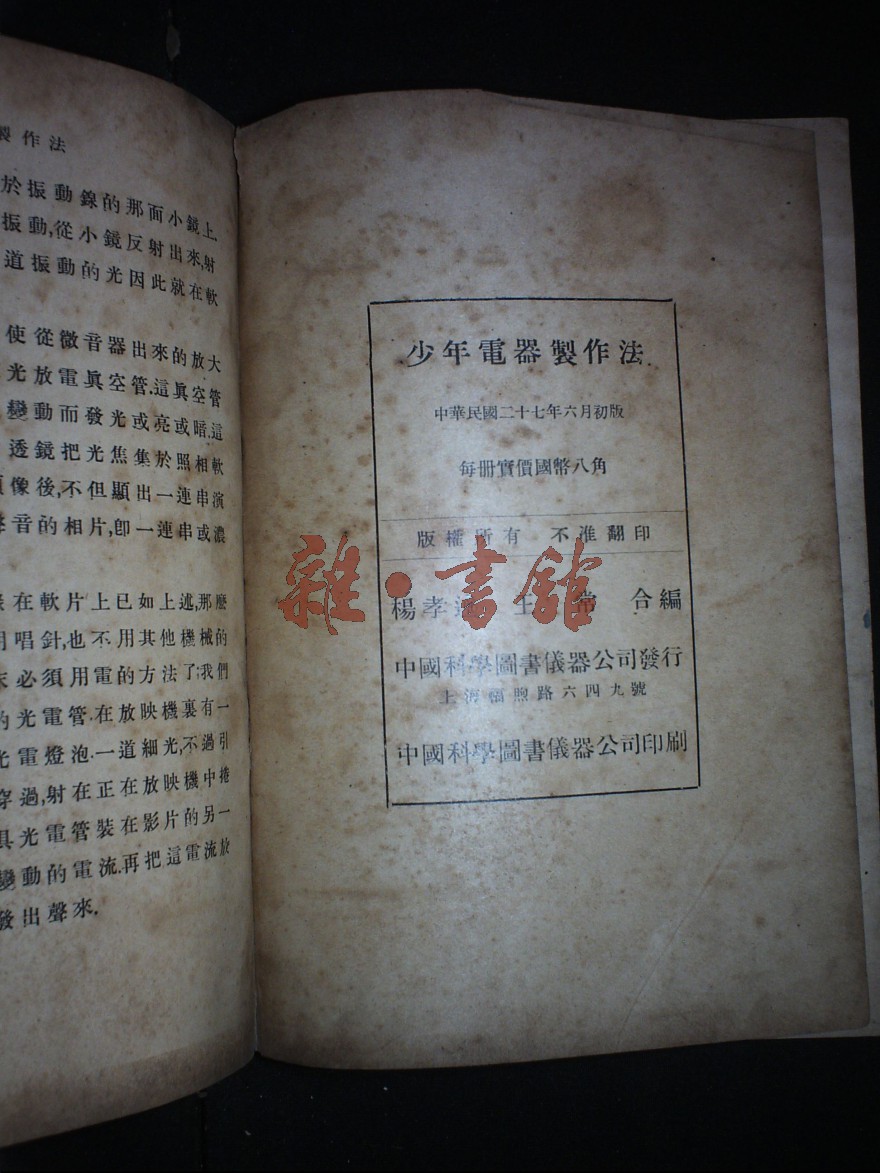 製作法
於振動鎳的那面小鏡上.
振動,從小鏡反射出來,射
道振動的光因此就在軟
使從微音器出來的放大
光放電眞空管.這眞空管
變動而發光或亮或暗.這
透鏡把光焦集於照相軟
像後,不但顯出一連串演
音的相片,卽一連串或濃
在軟片上已如上述,那麽
唱針,也不用其他機械的
必須用電的方法了;我們
的光電管.在放映機裏有一
光電燈泡.一道細光,不過引
穿過,射在正在放映機中捲
具光電管裝在影片的另一
變動的電流.再把這電流放
發出聲來.
少年電器製作法
中華民國二十七年六月初版
每册實價國幣八角
版權所有 不准翻印
楊孝 合編
中國科學圖書儀器公司發行
上海福煦路六四九號
中國科學圖書儀器公司印刷
雜·書館